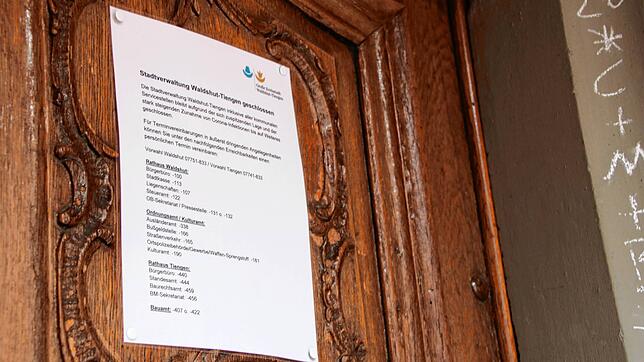 Große Kreisstadt
Waldshut-Tiengen
Stadtverwaltung Waldshut-Tiengen geschlossen
Die Stadtverwaltung Waldshut-Tiengen inklusive aller kommunalen
Servicestellen bleibt aufgrund der sich zuspitzenden Lage und der
stark steigenden Zunahme von Corona-Infektionen bis auf Weiteres
geschlossen.
Für Terminvereinbarungen in äußerst dringenden Angelegenheiten
können Sie unter den nachfolgenden Erreichbarkeiten einen
persönlichen Termin vereinbaren:
Vorwahl Waldshut 07751-833 / Vorwahl Tiengen 07741-833
Rathaus Waldshut:
Bürgerbüro: -100
Stadtkasse: -113
Liegenschaften: -107
Steueramt: -122
OB-Sekretariat / Pressestelle: -131 o. -132
Ordnungsamt / Kulturamt:
Ausländeramt: -338
Bußgeldstelle: -166
Straßenverkehr: -165
Ortspolizeibehörde/Gewerbe/Waffen-Sprengstoff: -161
Kulturamt: -190
Rathaus Tiengen:
Bürgerbüro: -440
Standesamt: -444
Baurechtsamt: -459
BM-Sekretariat: -456
Bauamt: -407 o. -422